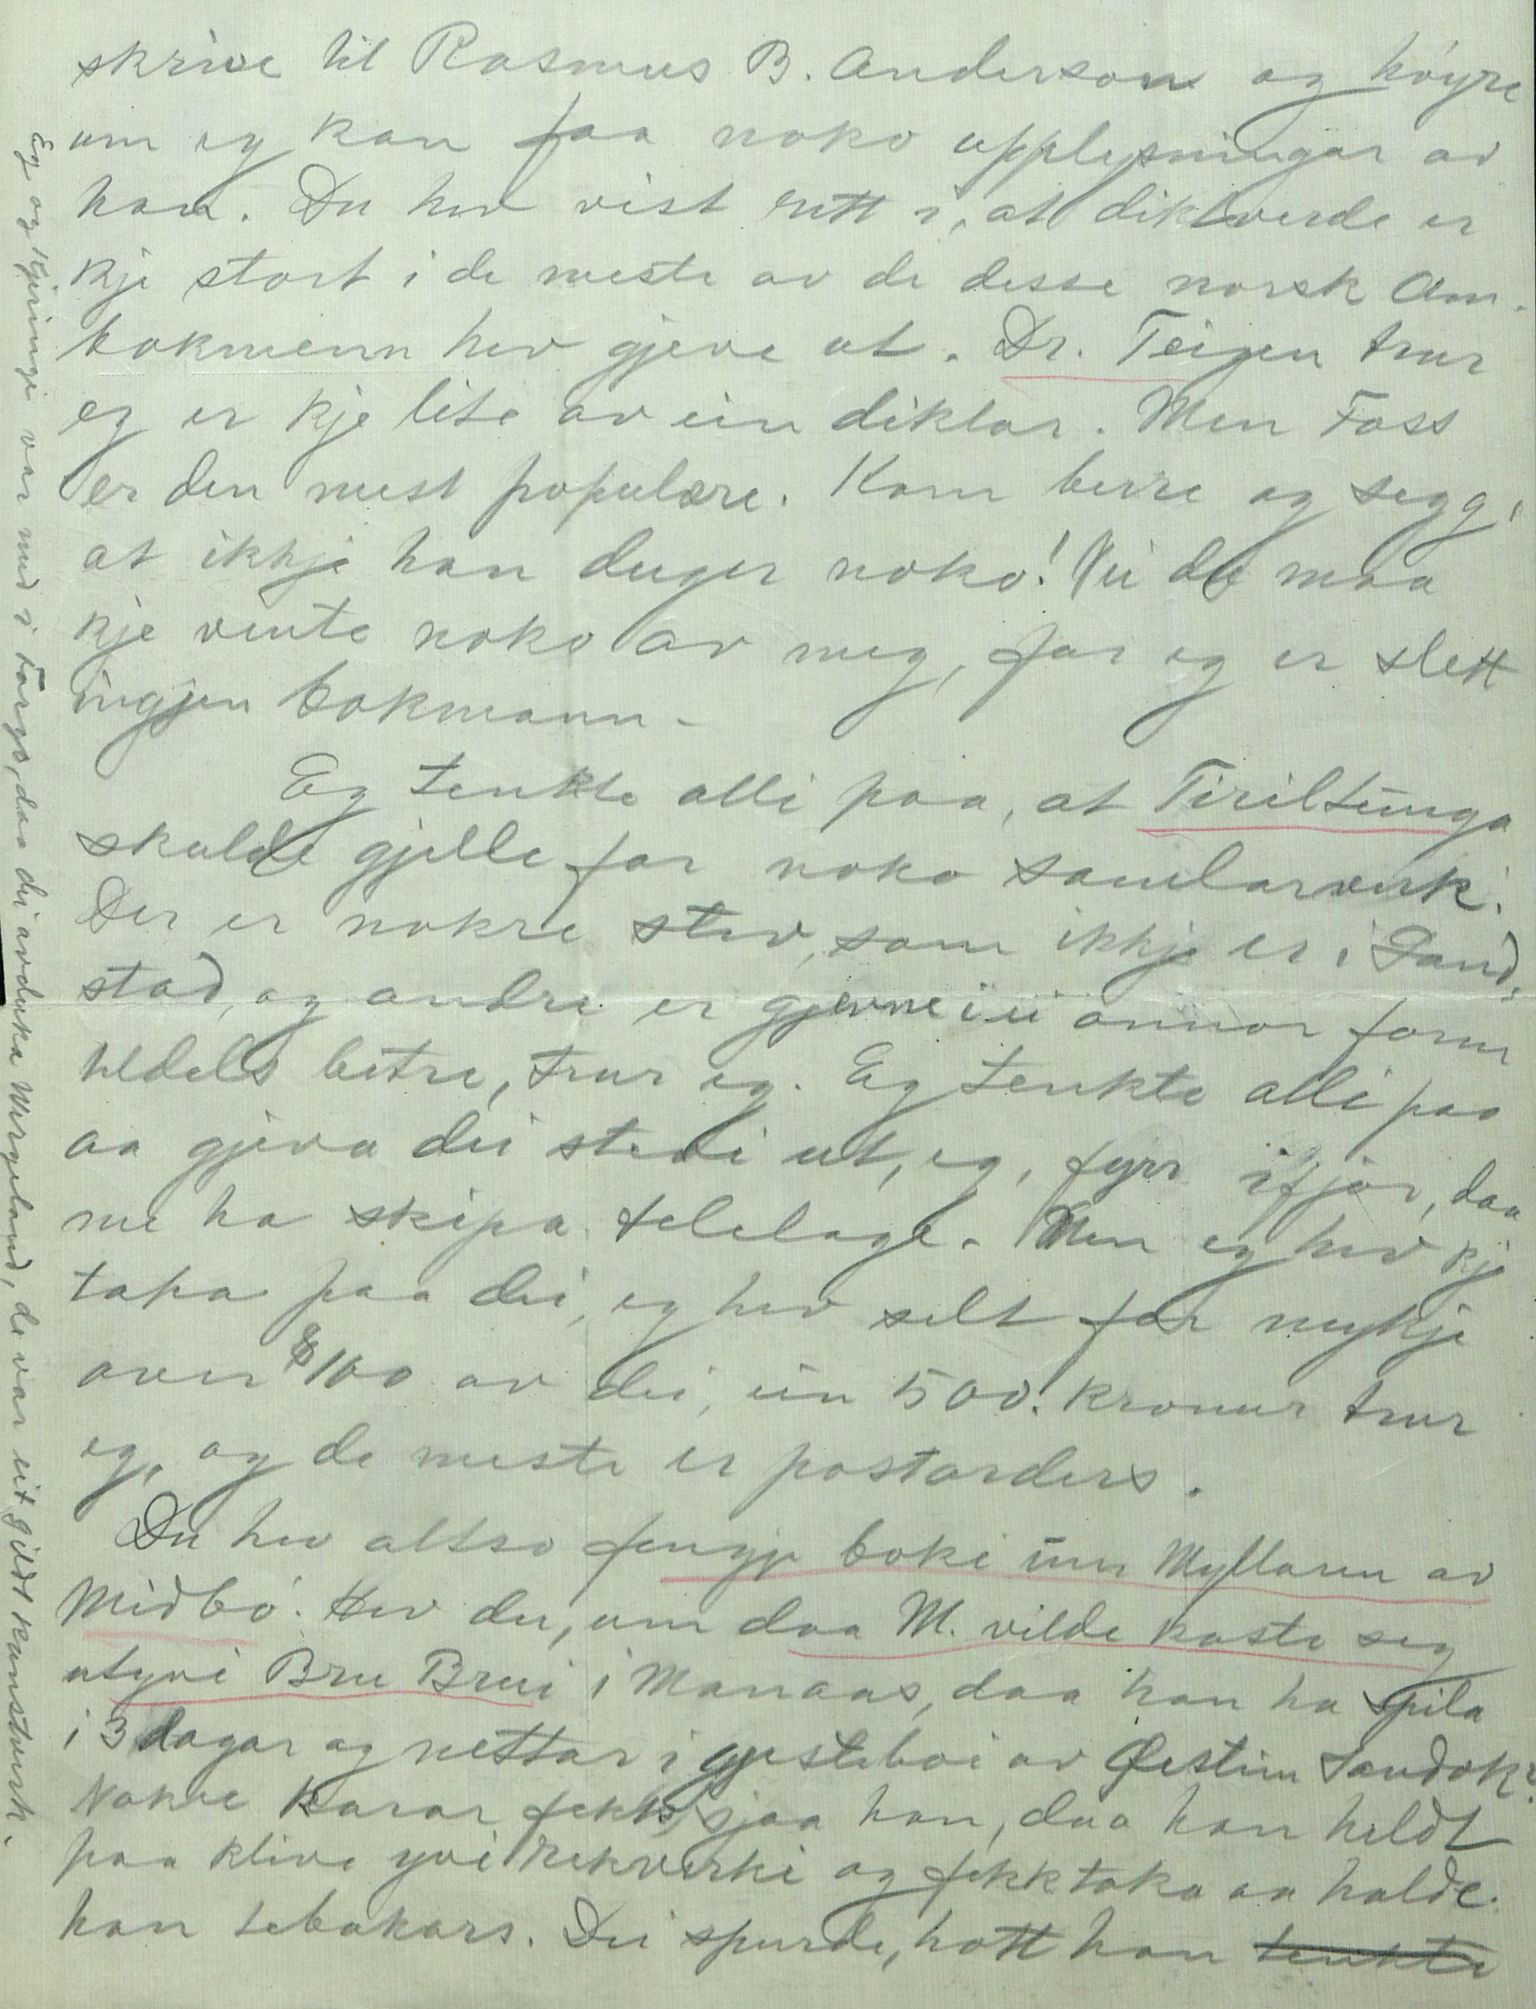 skrive til Rasmus B. Anderson og høyre
um eg kan faa noko upplysningar av
han. Du hev vist rett i, at diktverde er
kje stort i de meste av de desse norsk Am.
bokmenn hev gjeve ut. Dr. Teigen trur
eg er kje lite av ein diktar. Men Foss
er den mest populære. Kom berre og segg,
at ikkje han duger noko! Nei du maa
kje vente noko av meg, for eg er slett
ingjen bokmann-
Eg tenkte alli paa, at Tiriltunga
skulde gjelle for noko samlarverk.
Der er nokre stev, som ikkje er i Land-
stad, og andre er gjevne i ei annor form
heldels betre, trur eg. Eg tenkte alli paa
aa gjeva dei stevi ut, eg, fyrr ifjor, daa
me ha skipa telelage. Men eg hev kje
tapa paa dei, eg hev selt for mykje
over $100 av dei, ein 500. kronur trur
eg, og de meste er postorders.
Du hev altso fengje boki um Myllaren av
Midbø. Hev du, um daa M. vilde kaste seg
utyvi Bru Brui i Manaas, daa han ha spila
i 3 dagar og nettar i gjesteboi av Øistein Sandok?
Nokre karar fekk sjaa han, daa han heldt
paa klive yvi rekverki og fekk taka aa halde
han tebakars. Dei spurde, hott han tenkte
Eg og Kjeringi var med i Fargo, daa dei avduka Wergeland, de var eit gildt kunstverk.